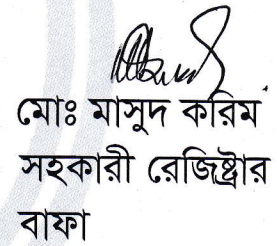 মোঃ মাসুদ করিম
সহকারী রেজিষ্ট্রার
বাফা